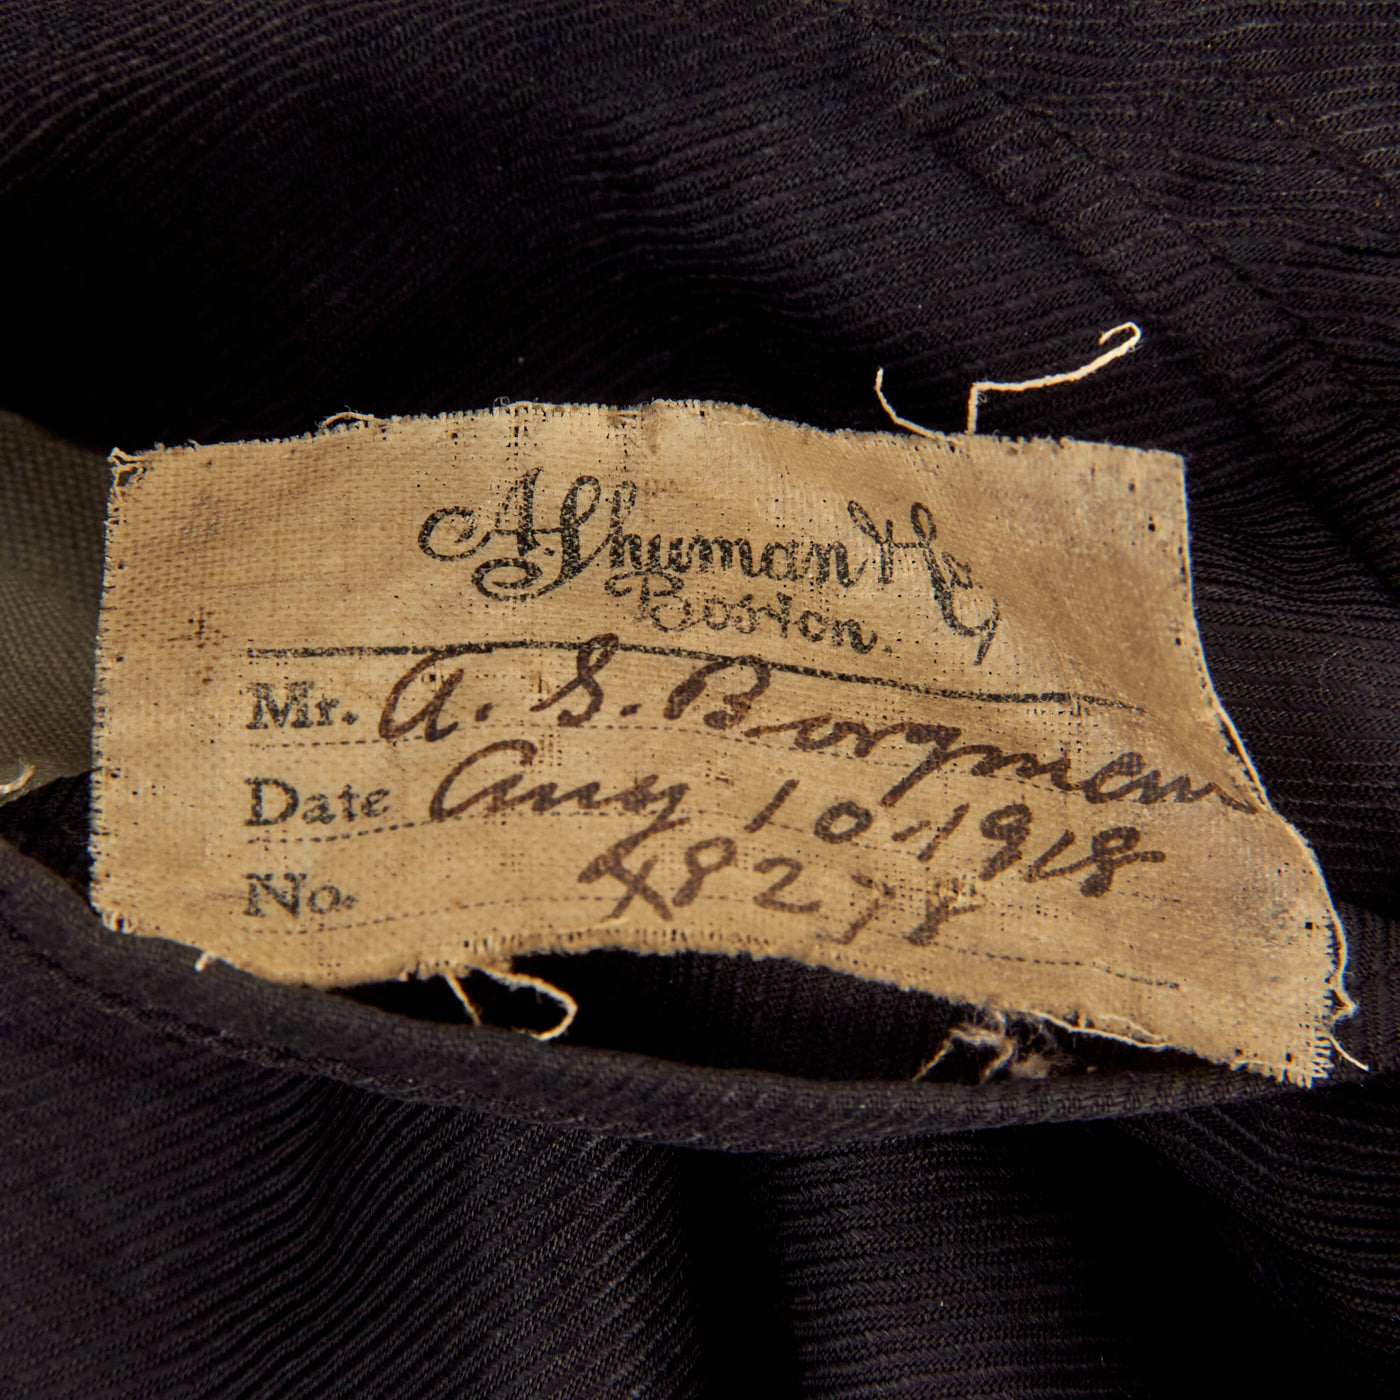 A. Shuman & Co
Boston.
Mr. A. S. Borgmem
Date Aug 10-1918
No. X8278